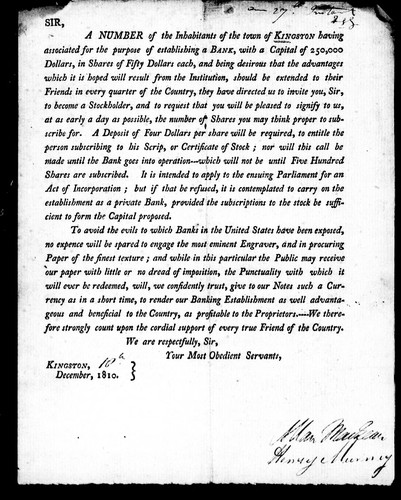 SIR,
A NUMBER of the Inhabitants of the town of KINGSTON having
associated for the purpose of establishing a BANK, with a Capital of 250,000
Dollars, in Shares of Fifty Dollars each, and being desirous that the advantages
which it is hoped will result from the Institution, should be extended to their
Friends in every quarter of the Country, they have directed us to invite you, Sir,
to become a Stockholder, and to request that you will be pleased to signify to us,
at as early a day as possible, the number of Shares you may think proper to sub-
scribe for. A Deposit of Four Dollars per share will be required, to entitle the
person subscribing to his Scrip, or Certificate of Stock ; nor will this call be
made until the Bank goes into operation---which will not be until Five Hundred
Shares are subscribed. It is intended to apply to the ensuing Parliament for an
Act of Incorporation ; but if that be refused, it is contemplated to carry on the
establishment as a private Bank, provided the subscriptions to the stock be suffi-
cient to form the Capital proposed.
To avoid the evils to which Banks in the United States have been exposed,
no expence will be spared to engage the most eminent Engraver, and in procuring
Paper of the finest texture ; and while in this particular the Public may receive
our paper with little or no dread of imposition, the Punctuality with which it
will ever be redeemed, will, we confidently trust, give to our Notes such a Cur-
rency as in a short time, to render our Banking Establishment as well advanta-
geous and beneficial to the Country, as profitable to the Proprietors.----We there-
fore strongly count upon the cordial support of every true Friend of the Country.
We are respectfully, Sir,
Your Most Obedient Servants,
KINGSTON, 10th
December, 1810.
Allan MacLean
Henry Murney